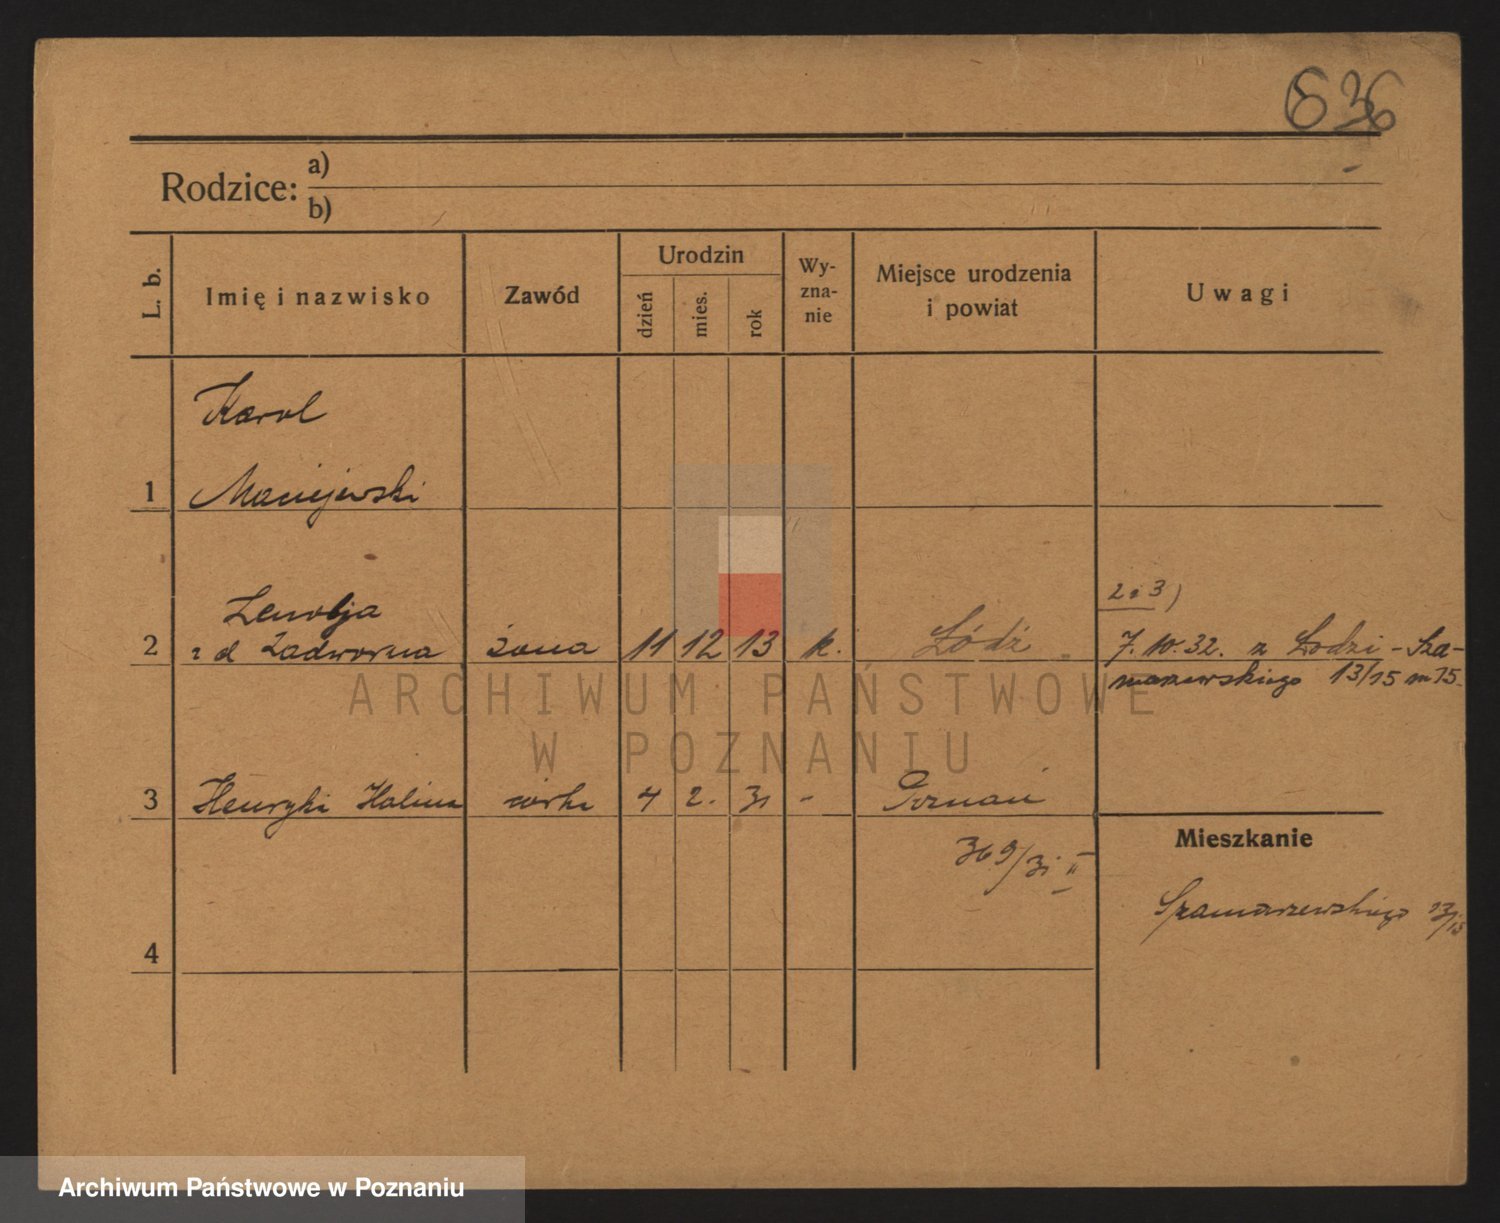 636
Rodzice: a)
b)
L. b.
Imię i nazwisko
Zawód
Urodzin
dzień
mies.
rok
Wy-
zna-
nie
Miejsce urodzenia
i powiat
Uwagi
Karol
1 Maciejewski
Zenobja
2 z d Zadworna żona 11 12 13 k. Łódź
2 i 3)
7.10.32. z Łodzi - Sza-
marzewskiego 13/15 m 15.
3 Henryka Halina córka 4 2. 31 - Poznań
369/31 II
Mieszkanie
Szamarzewskiego 13/15
4
ARCHIWUM PAŃSTWOWE
W POZNANIU
Archiwum Państwowe w Poznaniu